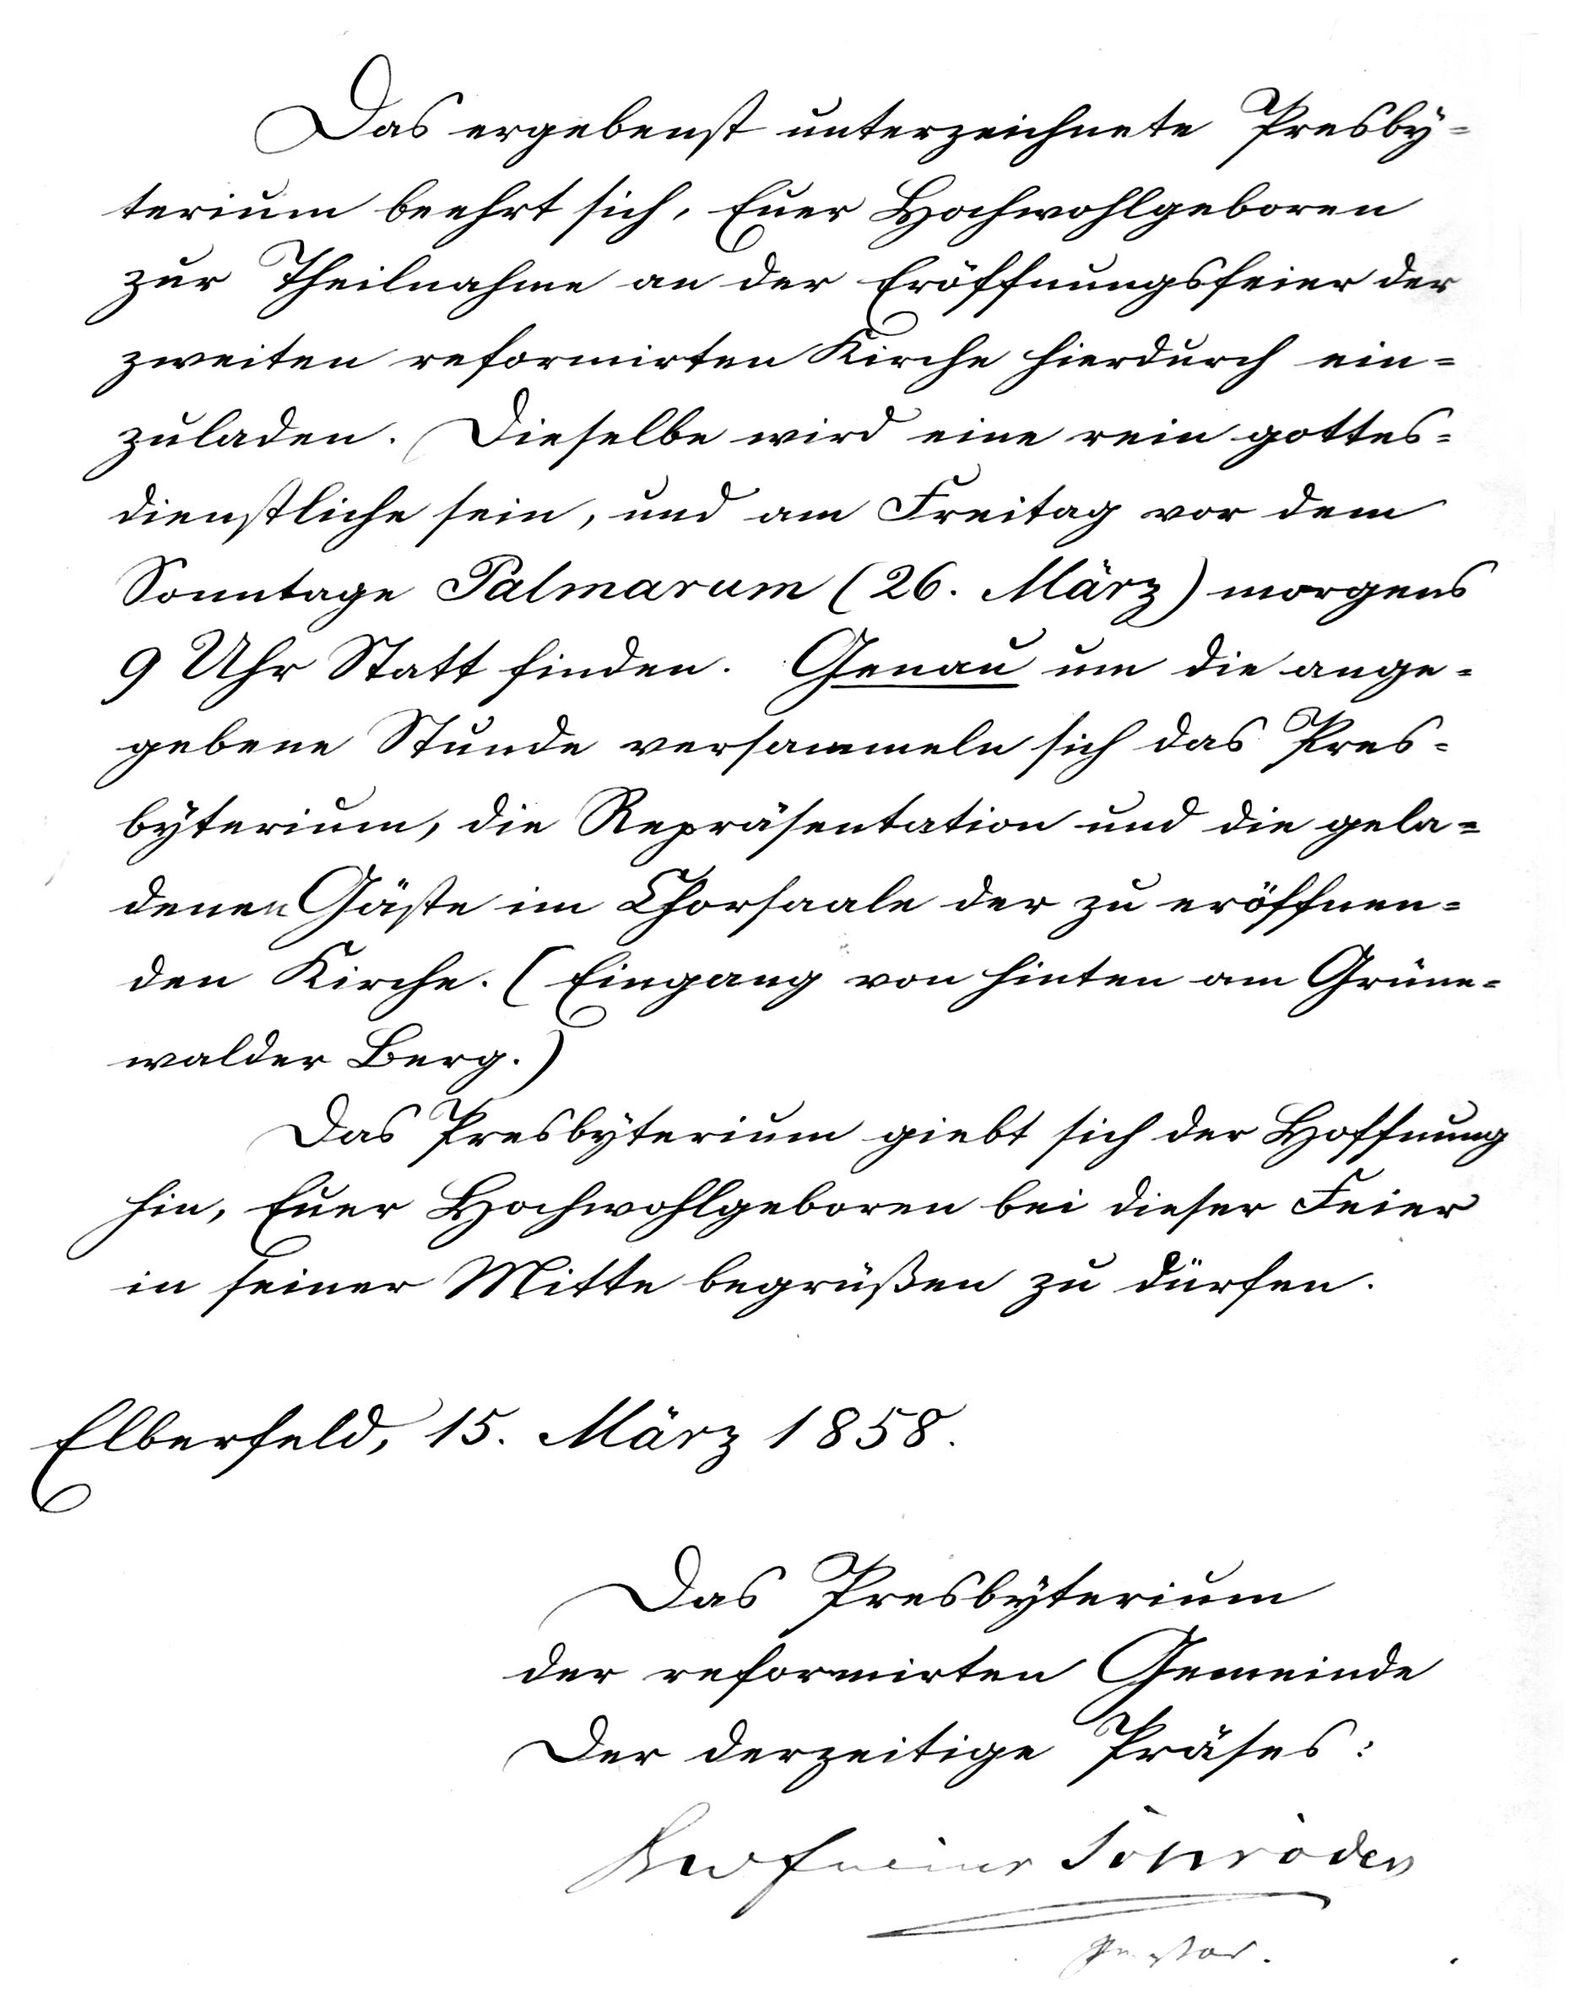 Das ergebenst unterzeichnete Presby-
terium beehrt sich, Euer Hochwohlgeboren
zur Theilnahme an der Eröffnungsfeier der
zweiten reformirten Kirche hierdurch ein-
zuladen. Dieselbe wird eine rein gottes-
dienstliche sein, und am Freitag vor dem
Sonntage Palmarum (26. März) morgens
9 Uhr Statt finden. Genau um die ange-
gebene Stunde versammeln sich das Pres-
byterium, die Repräsentation und die gela-
denen Gäste im Chorsaale der zu eröffnen-
den Kirche. (Eingang von hinten am Grüne-
walder Berg.)
Das Presbyterium giebt sich der Hoffnung
hin, Euer Hochwohlgeboren bei dieser Feier
in seiner Mitte begrüßen zu dürfen.
Elberfeld, 15. März 1858.
Das Presbyterium
der reformirten Gemeinde
Der derzeitige Präses:
Schröder
Pastor.